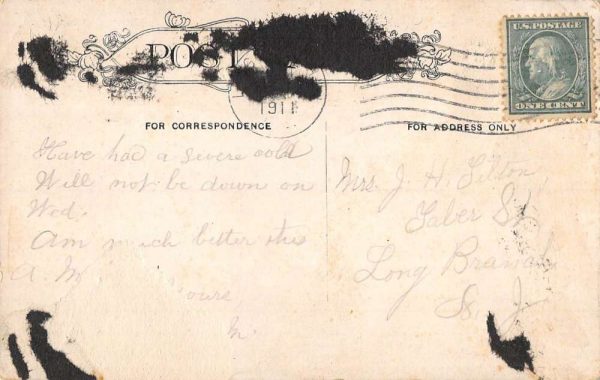 POST
U.S. POSTAGE
ONE CENT
1911
FOR CORRESPONDENCE
Have had a severe cold
Will not be down on
Wed.
Am much better this
A.M.
Yours,
M.
FOR ADDRESS ONLY
Mrs. J. H. Tilton,
Taber St
Long Branch
N. J.